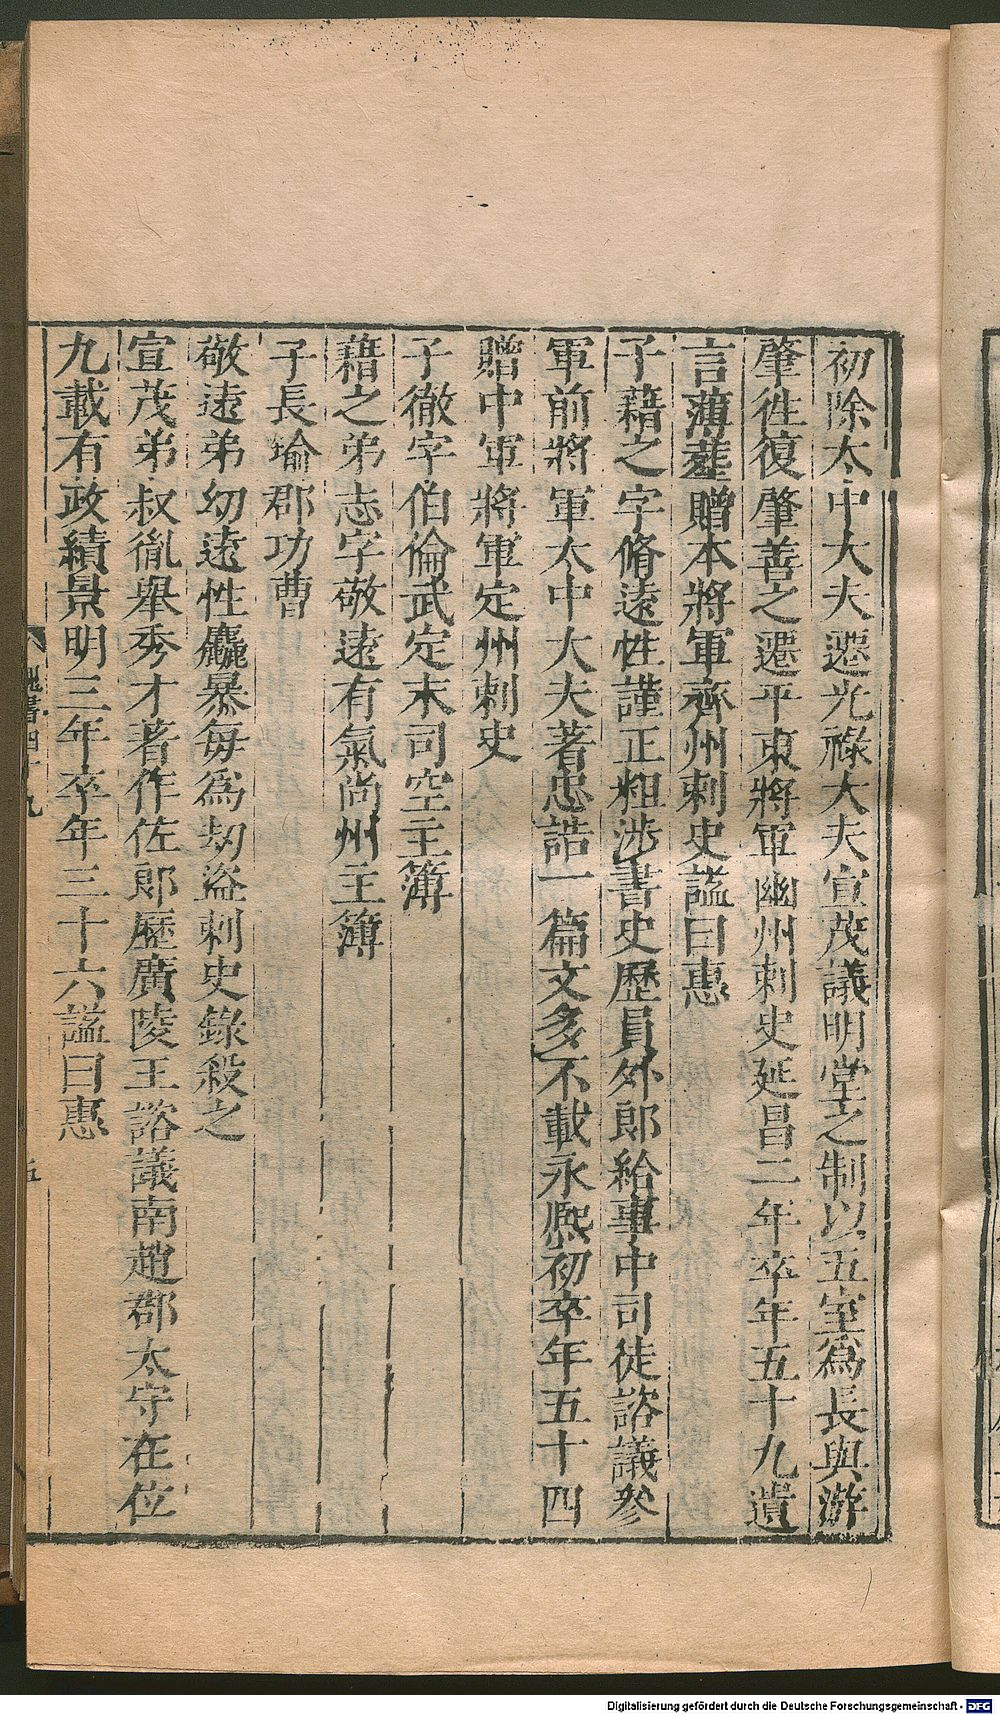 初除太中大夫遷光祿大夫宣茂議明堂之制以五室爲長與游
肇徃復肇善之遷平東將軍幽州刺史延昌二年卒年五十九遺
言薄塟贈本將軍齊州刺史諡曰惠
子籍之字脩遠性謹正粗涉書史歷員外郎給事中司徒諮議參
軍前將軍太中大夫著忠誥一篇文多不載永熙初卒年五十四
贈中軍將軍定州刺史
子徹字伯倫武定末司空主簿
籍之弟志字敬遠有氣尚州主簿
子長瑜郡功曹
敬遠弟幼遠性麤暴每爲刼盜刺史錄殺之
宣茂弟叔胤舉秀才著作佐郎歷廣陵王諮議南趙郡太守在位
九載有政績景明三年卒年三十六諡曰惠
魏書四十九
五
Digitalisierung gefördert durch die Deutsche Forschungsgemeinschaft - DFG